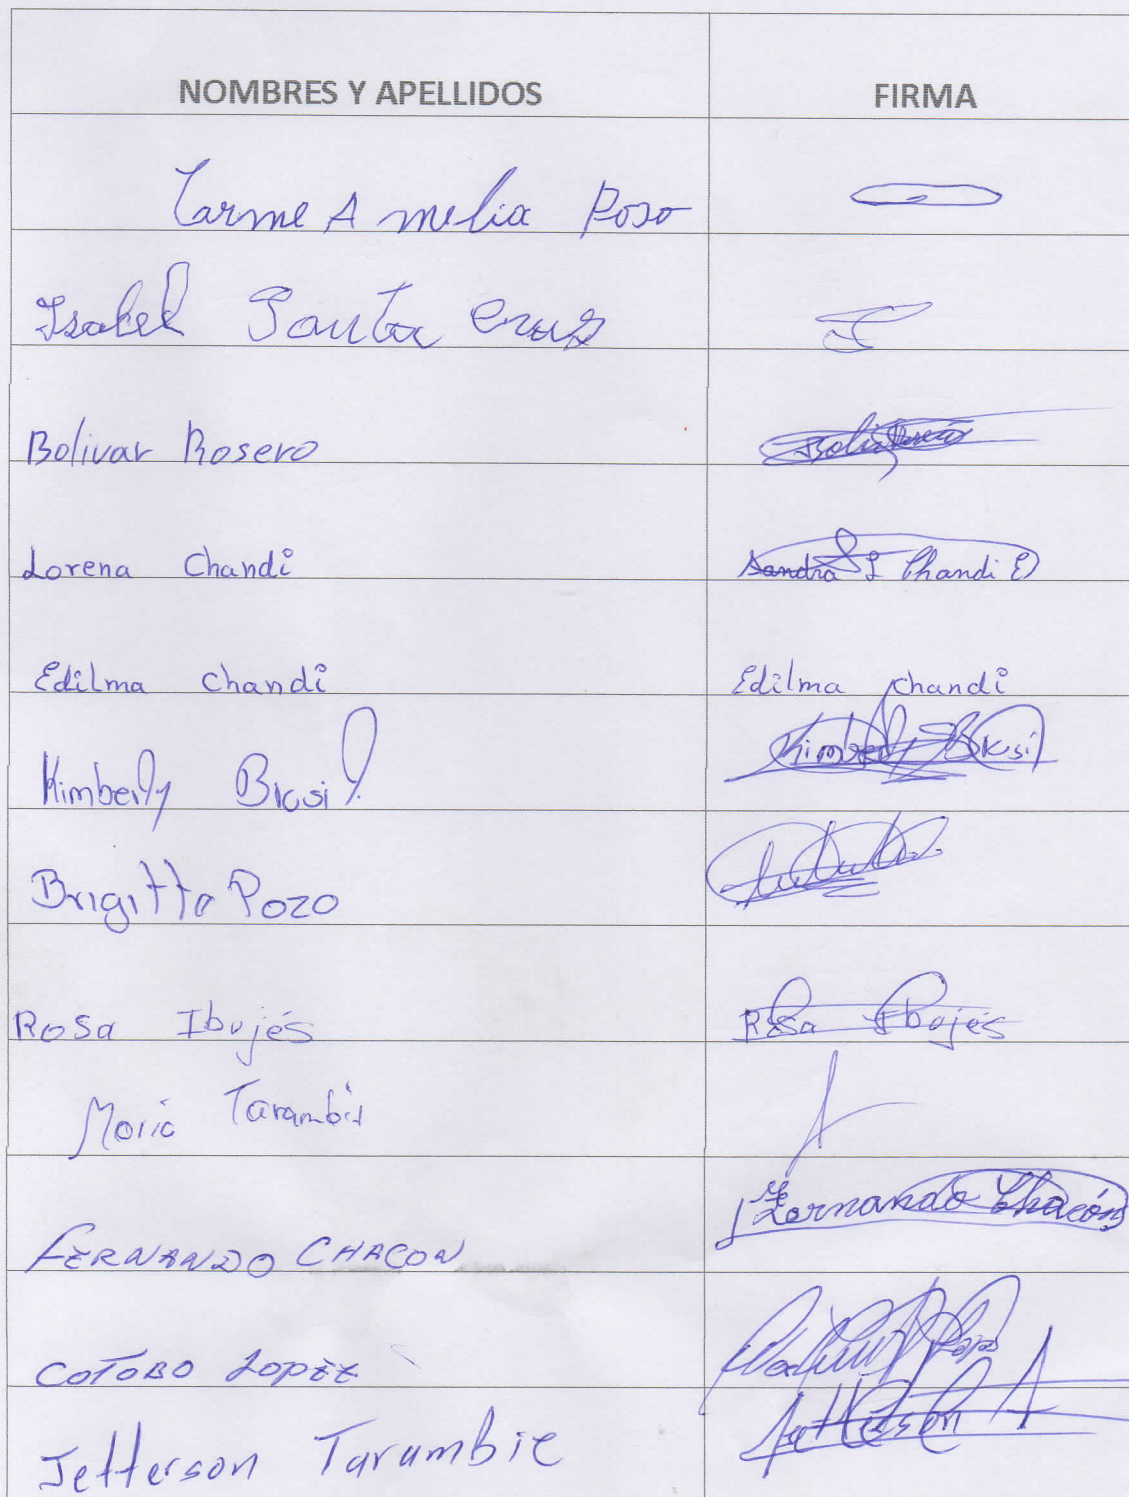 NOMBRES Y APELLIDOS FIRMA
Carme Amelia Poso
Isabel Santa Cruz
Bolivar Rosero
Lorena Chandi Sandra L Chandi E
Edilma Chandi Edilma Chandi
Kimberly Brasil Kimberly Brasil
Brigitte Pozo
Rosa Ibujés Rosa Ibujés
Maria Tarambis
FERNANDO CHACON Fernando Chacón
COTOBO LOPEZ
Jefferson Tarambie Jefferson